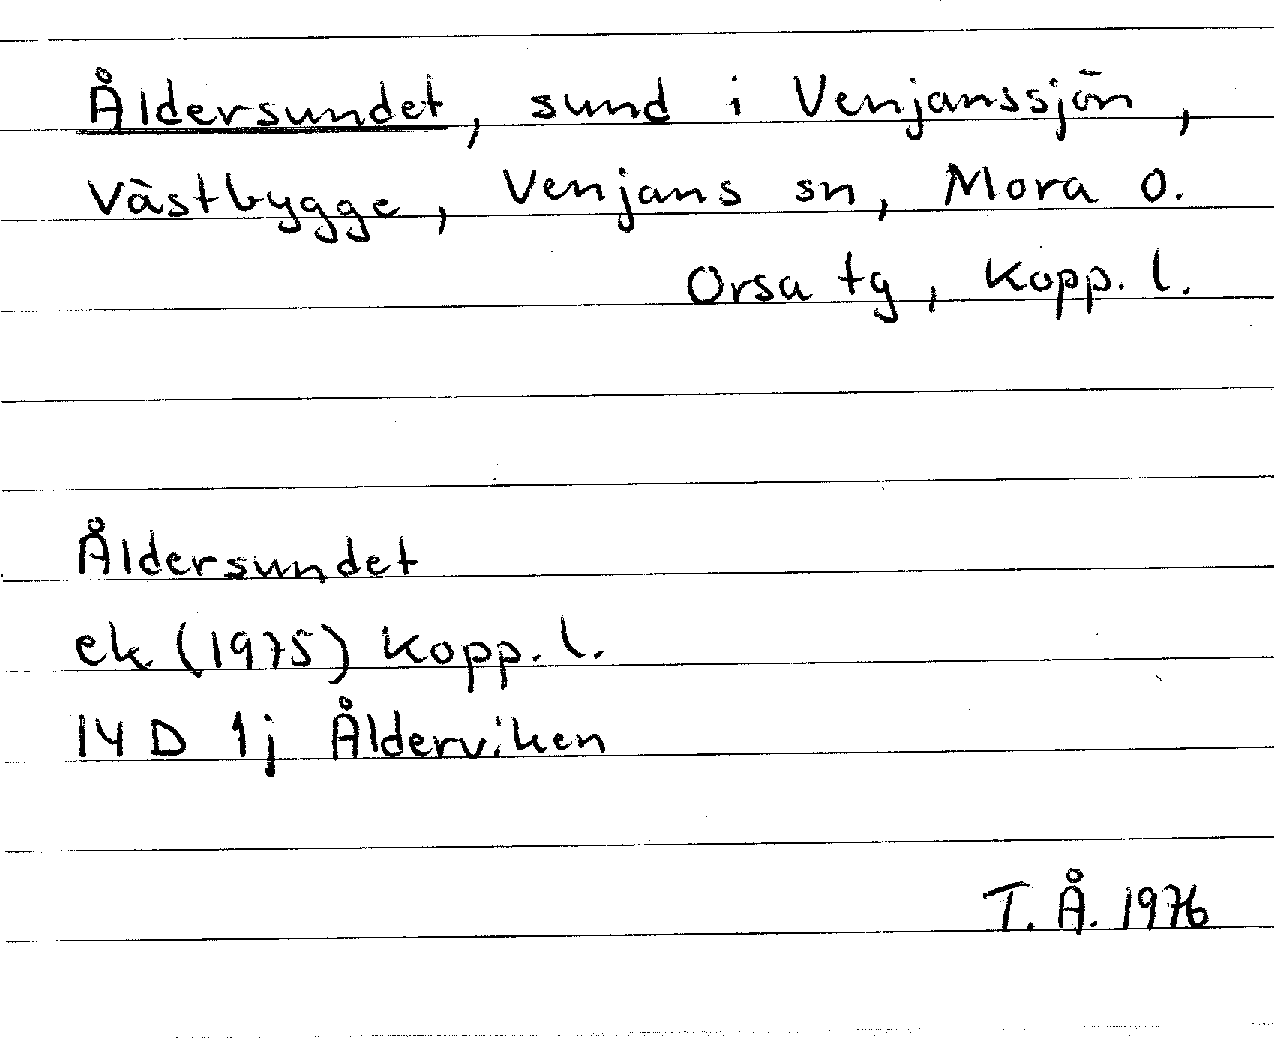 Åldersundet, sund i Venjanssjön,
Västbygge, Venjans sn, Mora o.
Orsa tg, Kopp. l.
Åldersundet
ek (1975) Kopp. l.
14 D 1j Ålderviken
T. Å. 1976